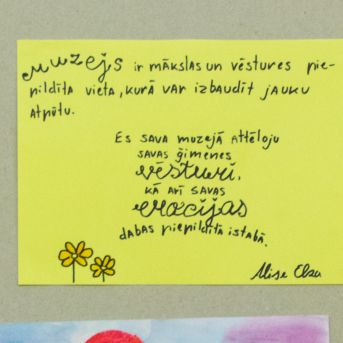 Muzejs ir mākslas un vēstures pie-
pildīta vieta, kurā var izbaudīt jauku
atpūtu.
Es sava muzejā attēloju
savas ģimenes
vēsturi,
kā arī savas
emocijas
dabas piepildītā istabā.